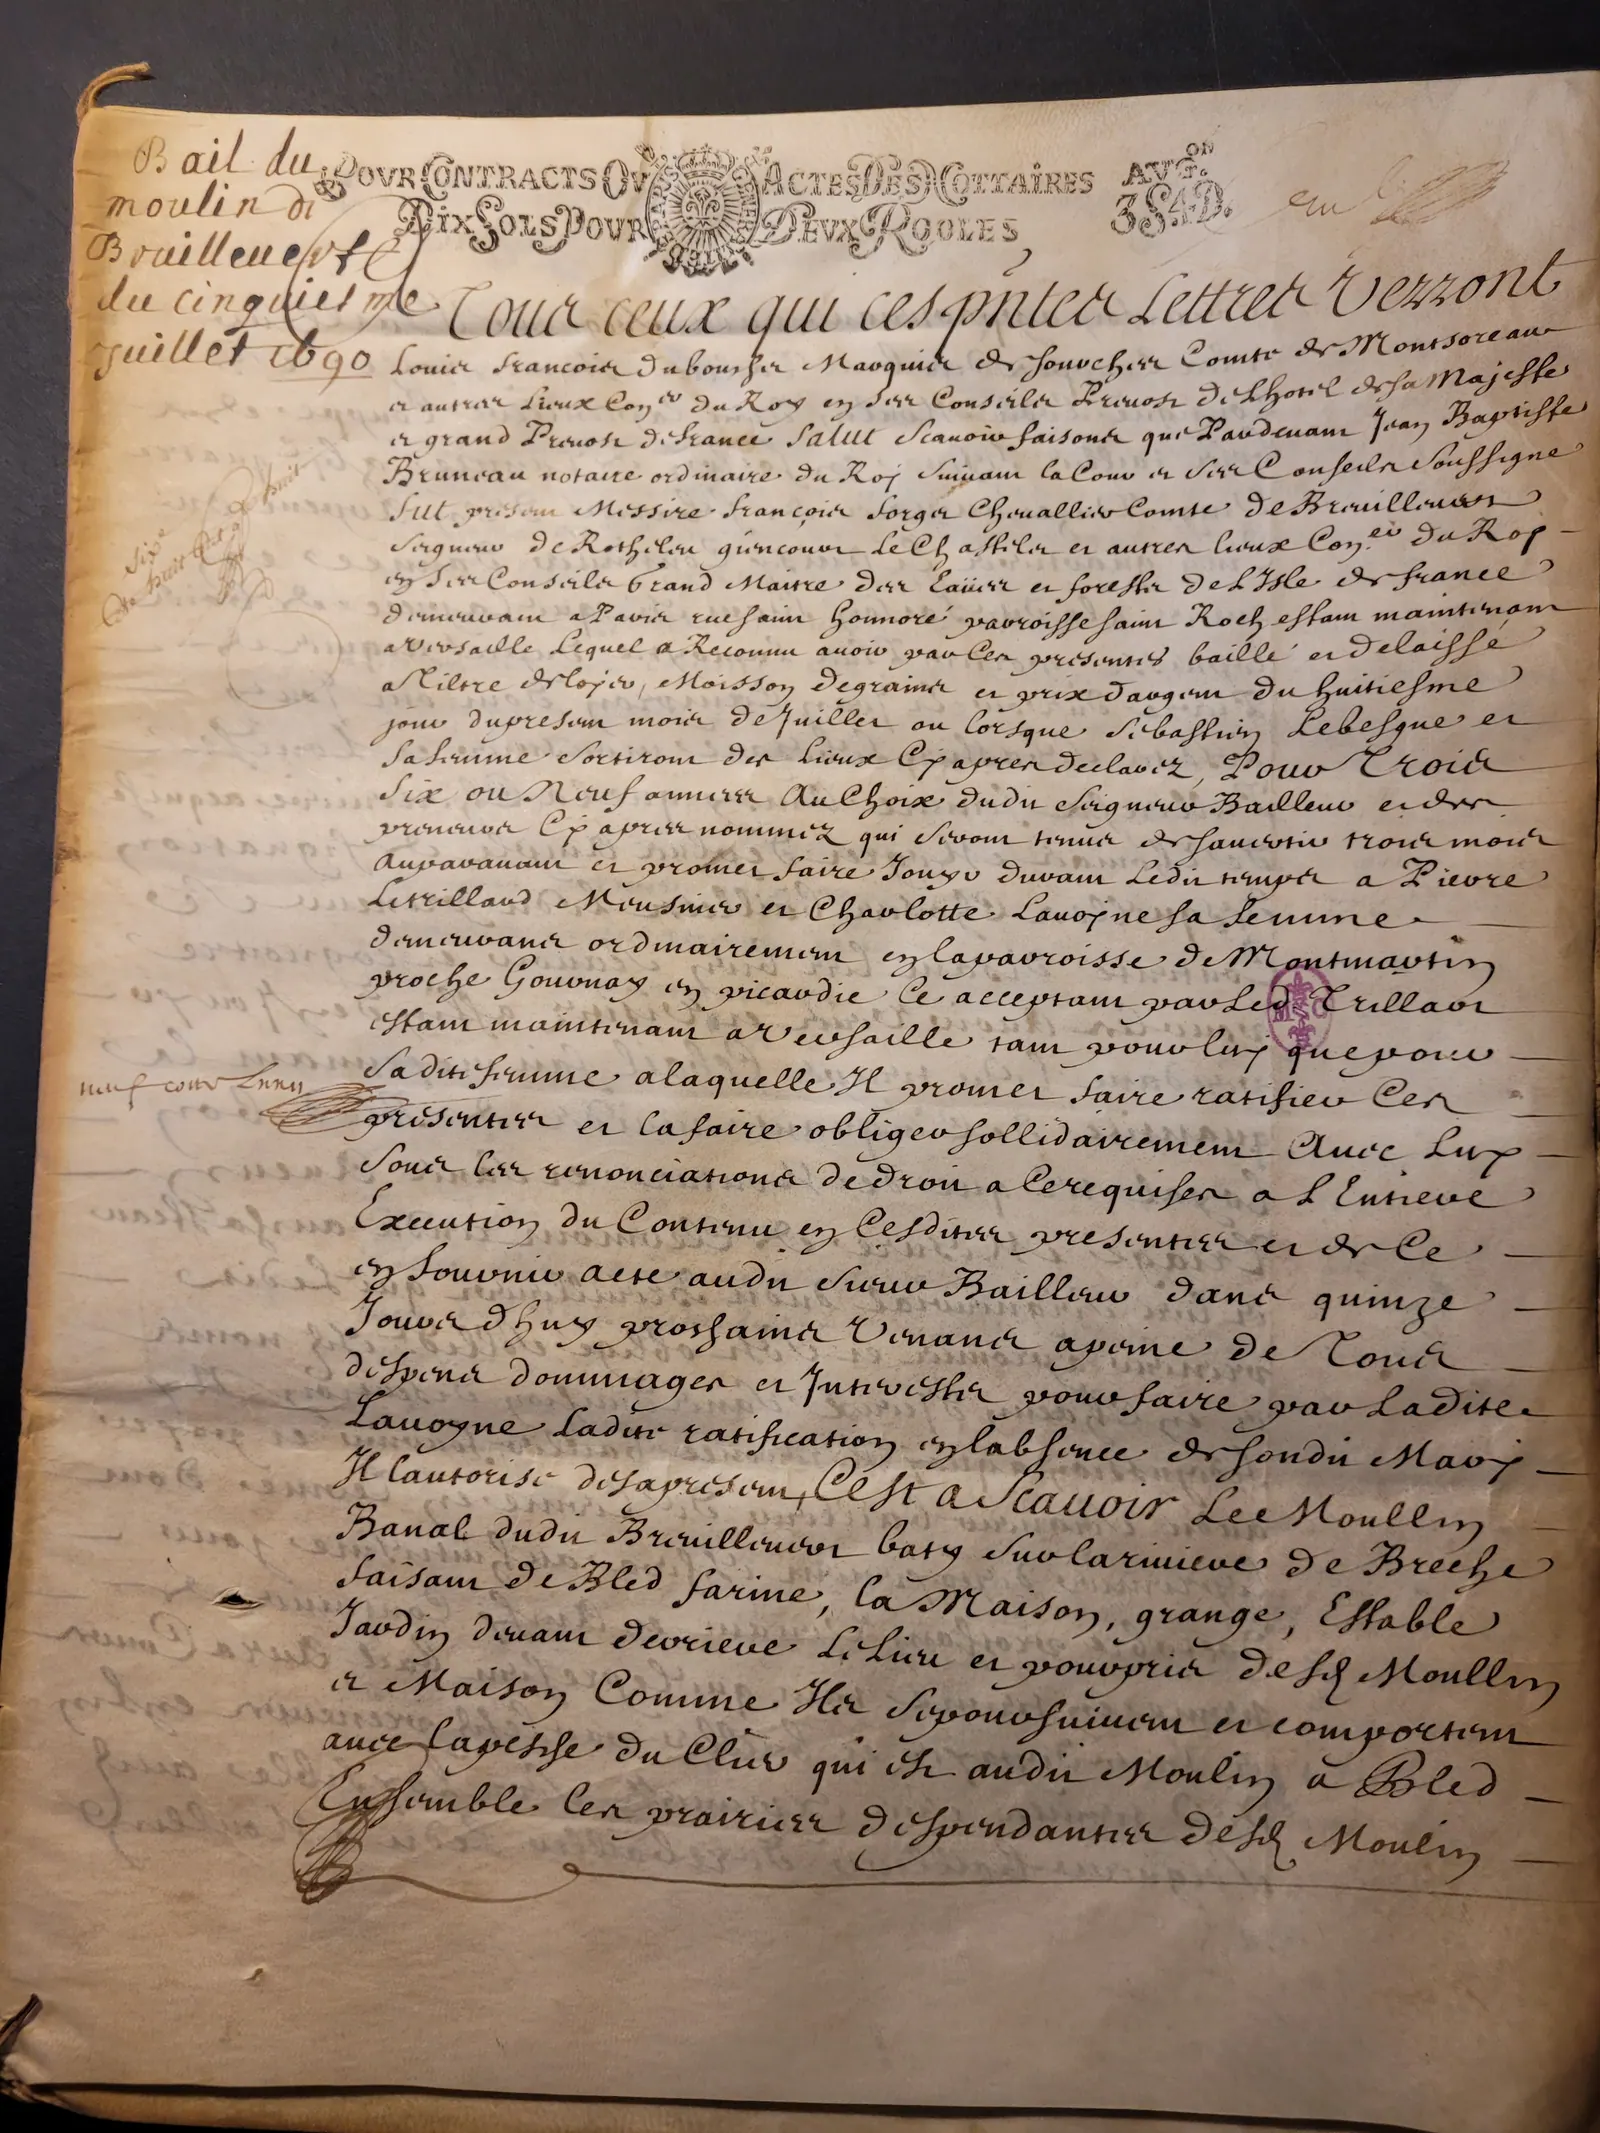 Bail du
moulin di
Breuilleuerst
du cinquiesme
Juillet 1690
POUR CONTRACTS OU ACTES DES NOTTAIRES AUG.on
DIX SOLS POUR DEUX ROOLES 3S4D.
A Tous ceux qui ces pntes Lettres Verront
Louis francois dubouschet Marquis de souches Comte de Montsoreau
et autres Lieux Con.er du Roy en ses Conseils Preuost de Lhotel de sa Majeste
et grand Preuost de france Salut Scauoir faisons que Pardeuant Jean Baptiste
Bruneau notaire ordinaire du Roy suiuant la Cour et ses Conseils Soussigne
fut present Messire françois forges Cheuallier Comte de Breuilleuert
Seigneur de Rotheleu giencourt Le Chastelet et autres lieux Con.er du Roy
en ses Conseils Grand Maitre des Eaües et forests de L'Isle de france
demeurant a Paris rue saint honnoré parroisse saint Roch estant maintenant
a Versaille Lequel a Reconnu auoir par Ces presentes baillé et delaissé
a tiltre de loyer, Moisson de grains et prix d'argent du huitiesme
jour du present mois de Juillet ou lorsque Sebastien Lebesgue et
sa femme Sortiront des Lieux Cy apres declarez, Pour Trois
Six ou Neuf annees Au Choix dudit Seigneur Bailleur et des
preneurs Cy apres nommez qui seront tenus de sauertir trois mois
auparauant et promet faire Jouyr durant Ledit temps a Pierre
Letrillard Meusnier et Charlotte Lauoyne sa femme
demeurans ordinairement en la parroisse de Montmartin
proche Gournay en picardie Ce acceptant par Led Trillart
estant maintenant a Versaille tant pour luy que pour
Sadite femme a laquelle Il promet faire ratifier Ces
presentes et la faire obliger sollidairement Auec Luy
Sous les renonciations de droit a Ce requises a L'Entiere
Execution du Contenu en Cesdites presentes et de Ce
en fournir acte audit Sieur Bailleur dans quinze
Jours d'huy prochains Venans a peine de Tous
despens dommages et Interests pour faire par Ladite
Lauoyne Ladite ratification en labsence de sondit Mary
Il lautorise des apresent, C'est a Scauoir Le Moullin
Banal dudit Breuilleuert baty sur la riuiere de Breche
faisant de Bled farine, la Maison, grange, Estable
Jardin deuant derriere Le Lieu et pourpris desd Moullin
et Maison Comme Ils se poursuiuent et comportent
auec la pesche du Clier qui est audit Moulin a Bled
Ensemble les prairies despendantes desd Moulin